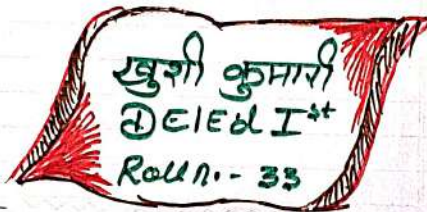 खुशी कुमारी
DElEd Ist
Roll n.- 33